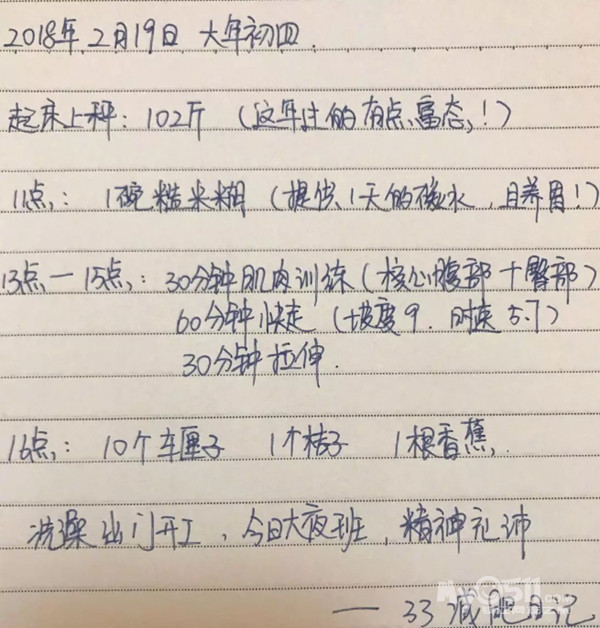 2018年2月19日 大年初四.
起床上秤：102斤（这年过的有点富态！）
11点：1碗糙米糊（提供1天的碳水，且养胃！）
13点一15点：30分钟肌肉训练（核心腹部+臀部）
60分钟快走（坡度9. 时速5.7）
30分钟拉伸.
16点：10个车厘子 1个桔子 1根香蕉.
洗澡出门开工，今日大夜班，精神充沛
— 33减肥日记